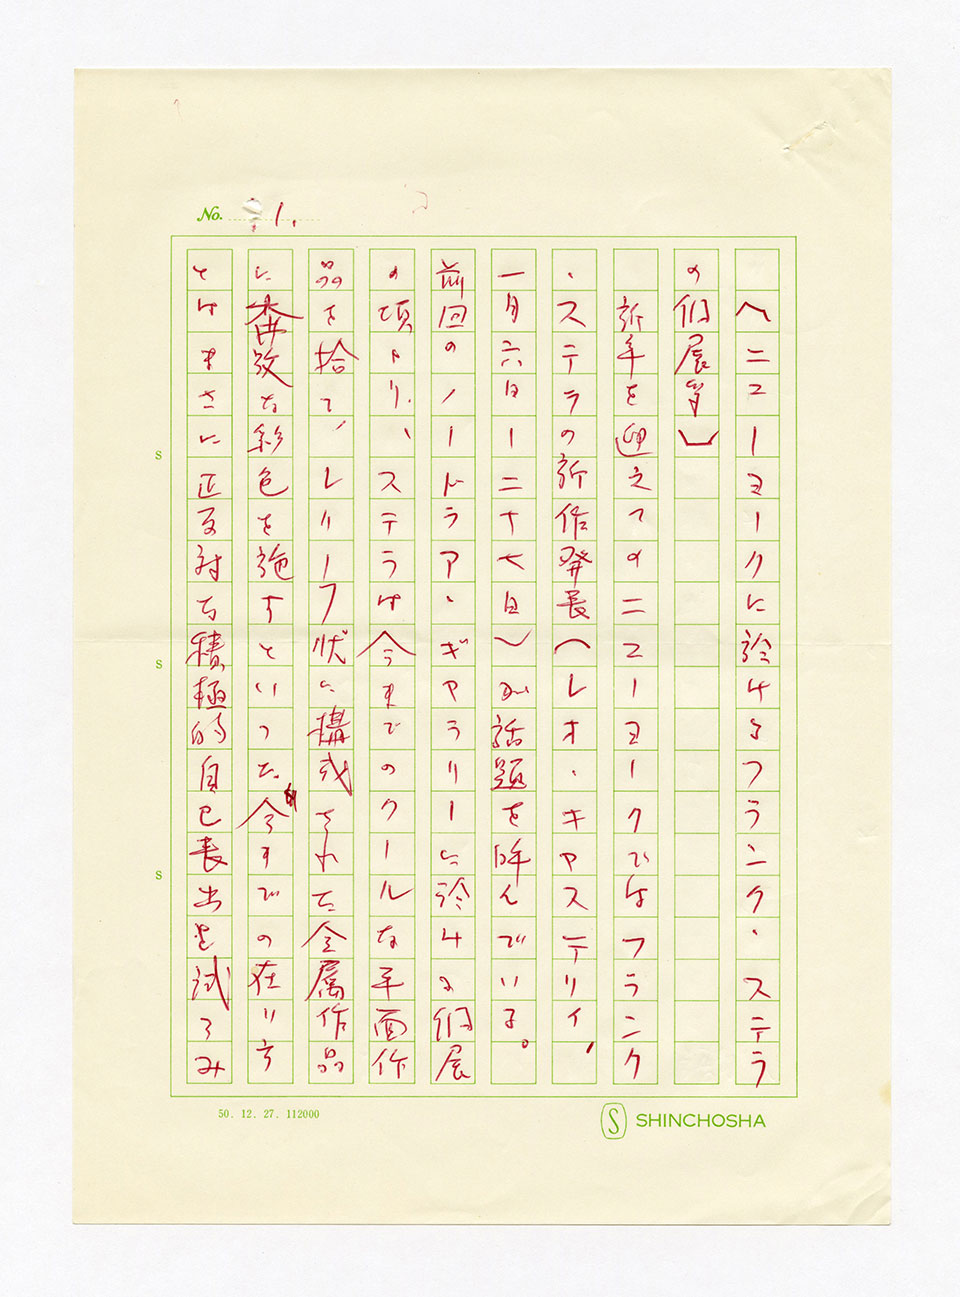 No. 1.
〔ニューヨークに於けるフランク・ステラ
の個展等〕
新年を迎えてのニューヨークではフランク
・ステラの新作発表(レオ・キャステリイ、
一月六日ー二十七日)が話題を呼んでいる。
前回のノードラア・ギャラリーに於ける個展
の頃より、ステラは今までのクールな平面作
品を捨て、レリーフ状に構成された金属作品
に奔放な彩色を施すといった、今までの在り方
とはまさに正反対な積極的自己表出を試ろみ
S
S
S
50. 12. 27. 112000
S SHINCHOSHA